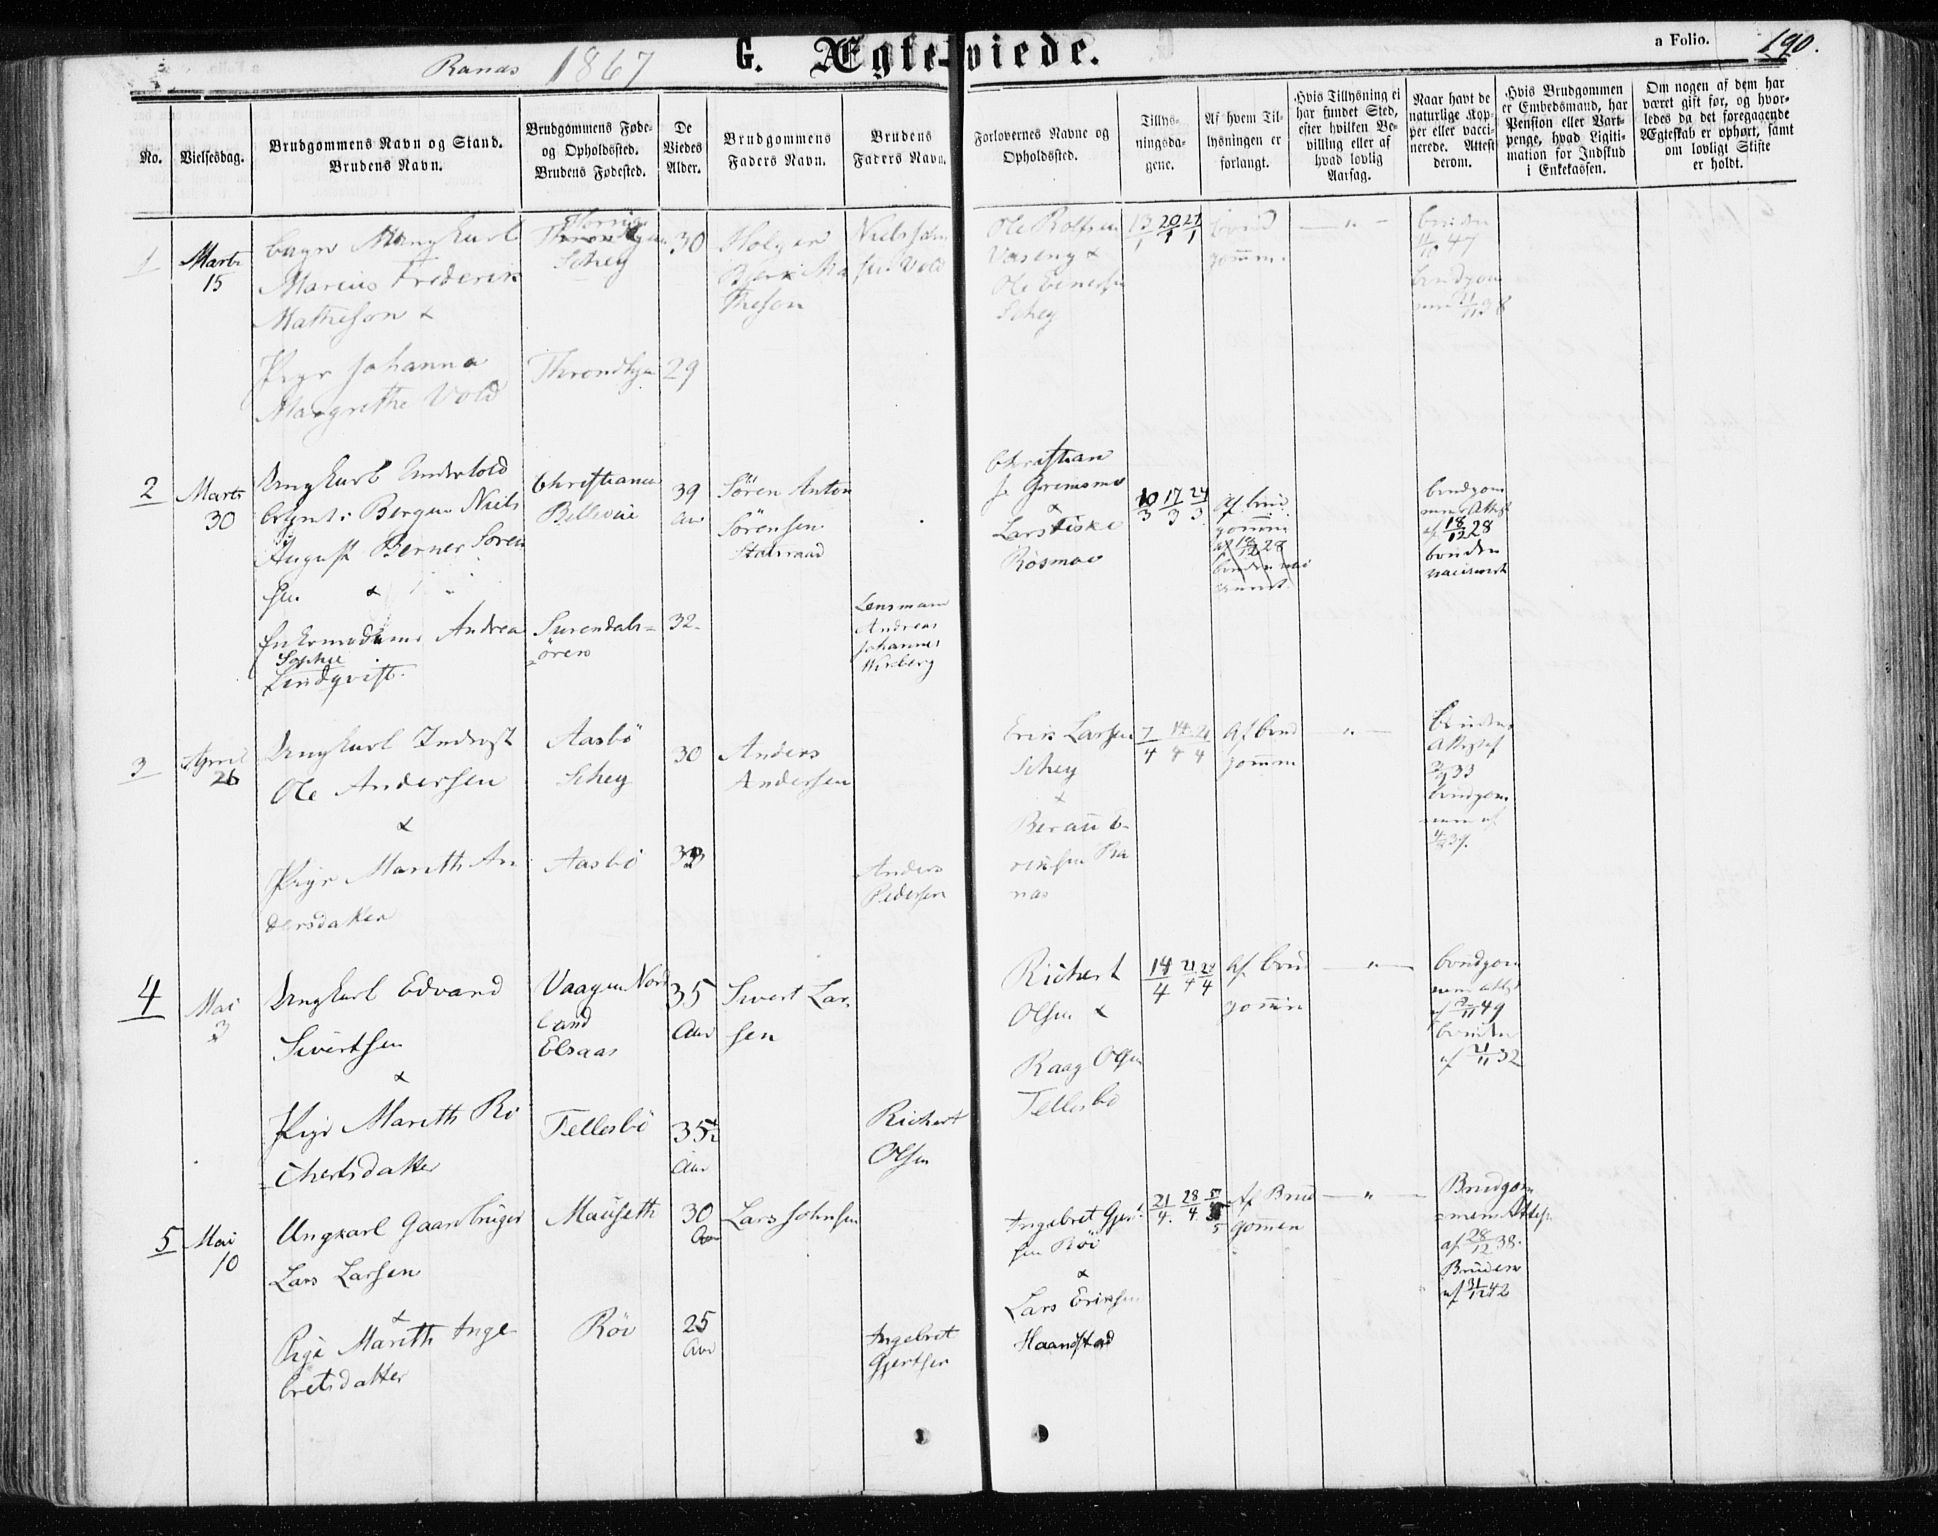 Ranæs 1867
G. Ægte-viede.
a Folio. 190.
No.
Vielsesdag.
Brudgommens Navn og Stand.
Brudens Navn.
Brudgommens Føde-
og Opholdssted.
Brudens Fødested.
De
Viedes
Alder.
Brudgommens
Faders Navn.
Brudens
Faders Navn.
Forlovernes Navne og
Opholdssted.
Tillys-
ningsda-
gene.
Af hvem Til-
lysningen er
forlangt.
Hvis Tillysning ei
har fundet Sted,
efter hvilken Be-
villing eller af
hvad lovlig
Aarsag.
Naar havt de
naturlige Kop-
per eller vacci-
nerede. Attest
derom.
Hvis Brudgommen
er Embedsmand, har
Pension eller Vart-
penge, hvad Legiti-
mation for Indskud
i Enkekassen.
Om nogen af dem har
været gift før, og hvor-
ledes da det foregaaende
Ægteskab er ophørt, samt
om lovligt Skifte
er holdt.
1
Marts
15
Ungkarl
Marius Frederik
Matheson &
Pige Johanna
Margrethe Vold
Schey
Throndhjem
30
29
Holger
Mathesen
Niels
Vold
Ole Rolfsen
Vaseng &
Ole Evensen
Schey
13/1 20/1 27/1
brud
gomm.
— " —
bruden
47
brudgom
38
2
Marts
30
Ungkarl Underhold
Bergen Niels
August Berner Søren
sen &
Enkemadame Andrea
Sophie
Lindqvist.
Christiania
Bellevue
Surendals-
øren
39
Aar
32
Sören Anton
Sörensen
Statsraad
Lensmann
Andreas
Johannes
Christian
&
Lars Fiske
Røsmoe
10/3 17/3 24/3
Af brud
gomm
brudgom
men Attest
af 18/12 28
bruden
3
April
26
Ungkarl Inderst
Ole Andersen
&
Pige Marith An
dersdatter
Aasbö
Schey
Aasbö
30
33
Anders
Andersen
Anders
Pedersen
Erik Larsen
Schey
&
Ranæs
7/4 14/4 21/4
Af brud
gomm
" —
Brudens
Attest af
33
brudgom
men af
37.
4
Mai
3
Ungkarl Edvard
Sivertsen
&
Pige Marith Ri
chertsdatter
Vaagen Nord
land
Elsaas
Tellesbö
35
Aar
35½
Aar
Sivert Lar
sen
Richert
Olsen
Richert
Olsen &
Raag Olsen
Tellesbö
14/4 21/4 28/4
Af brud
gomm
— " —
brudgom
men attest
af 49
bruden
af 32
5
Mai
10
Ungkarl Gaardbruger
Lars Larsen
&
Pige Marith Inge
bretsdatter
Mauseth
Röv
30
Aar
25
Aar
Lars Johnsen
Ingebret
Gjertsen
Ingebret Gjert
sen Röv
&
Lars Eriksen
Haandstad
21/4. 28/4. 5/5
Af Brud
gommen
— " —
Brudgom
mens Attest
af 28/12 38.
Bruden
af 42